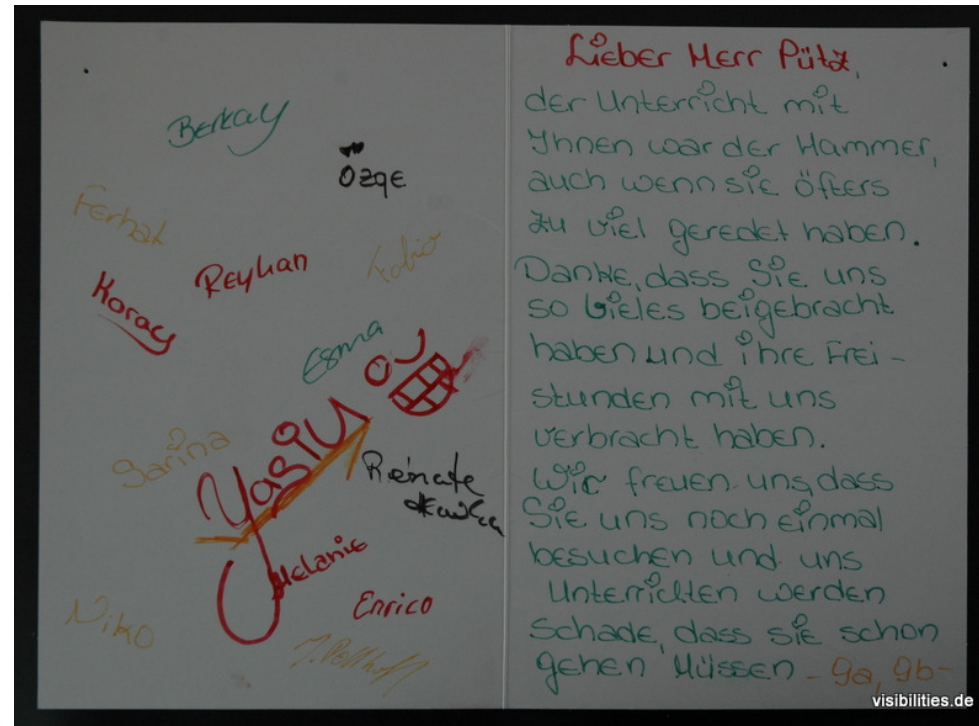 Berkay
Özge
Ferhat
Reyhan
Fabio
Koray
Esma
Sarina
Yagiz
Renate
Melanie
Enrico
Niko
Lieber Herr Pütz,
der Unterricht mit
Ihnen war der Hammer,
auch wenn sie öfters
zu viel geredet haben.
Danke, dass Sie uns
so vieles beigebracht
haben und ihre Frei-
stunden mit uns
verbracht haben.
Wir freuen uns, dass
Sie uns noch einmal
besuchen und uns
Unterrichten werden
Schade, dass sie schon
gehen Müssen - 9a, 9b-
visibilities.de